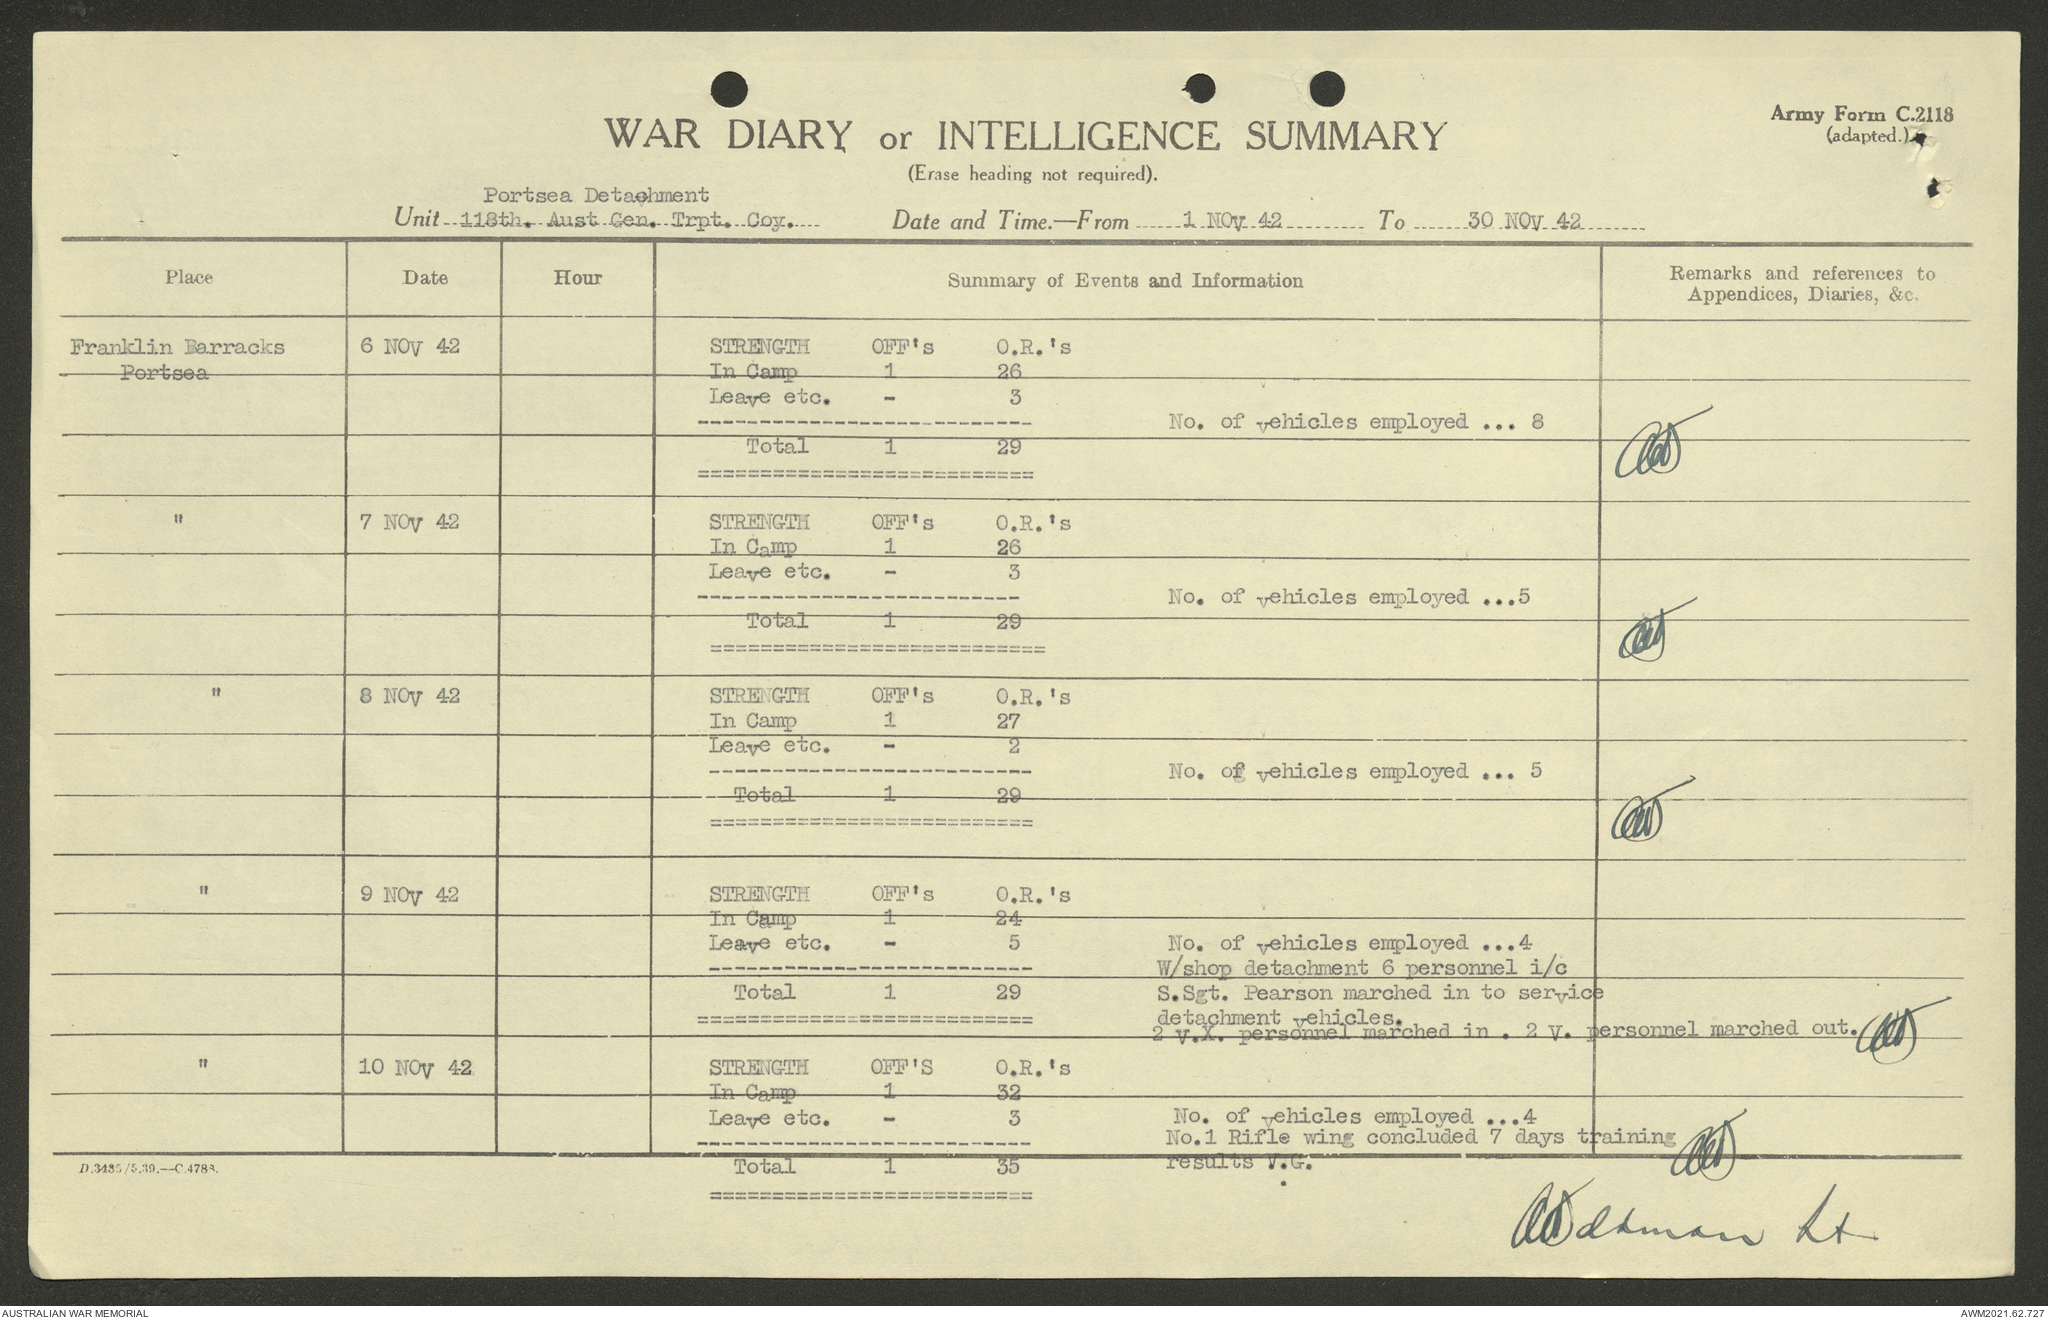 WAR DIARY or INTELLIGENCE SUMMARY
(Erase heading not required).
Army Form C.2118
(adapted.)
Portsea Detachment
Unit 118th. Aust Gen. Trpt. Coy. Date and Time.—From 1 NOv 42 To 30 NOv 42
Place Date Hour Summary of Events and Information Remarks and references to
Appendices, Diaries, &c.
Franklin Barracks 6 NOv 42 STRENGTH OFF's O.R.'s
Portsea In Camp 1 26
Leave etc. - 3
No. of vehicles employed ... 8
Total 1 29
" 7 NOv 42 STRENGTH OFF's O.R.'s
In Camp 1 26
Leave etc. - 3
No. of vehicles employed ...5
Total 1 29
" 8 NOv 42 STRENGTH OFF's O.R.'s
In Camp 1 27
Leave etc. - 2
No. of vehicles employed ... 5
Total 1 29
" 9 NOv 42 STRENGTH OFF's O.R.'s
In Camp 1 24
Leave etc. - 5 No. of vehicles employed ...4
W/shop detachment 6 personnel i/c
Total 1 29 S.Sgt. Pearson marched in to service
detachment vehicles.
2 v.X. personnel marched in . 2 V. personnel marched out.
" 10 NOv 42 STRENGTH OFF'S O.R.'s
In Camp 1 32
Leave etc. - 3 No. of vehicles employed ...4
No.1 Rifle wing concluded 7 days training
Total 1 35 results V.G.
D.3485/5.39.—C.4788.
Lt
AUSTRALIAN WAR MEMORIAL
AWM2021.62.727